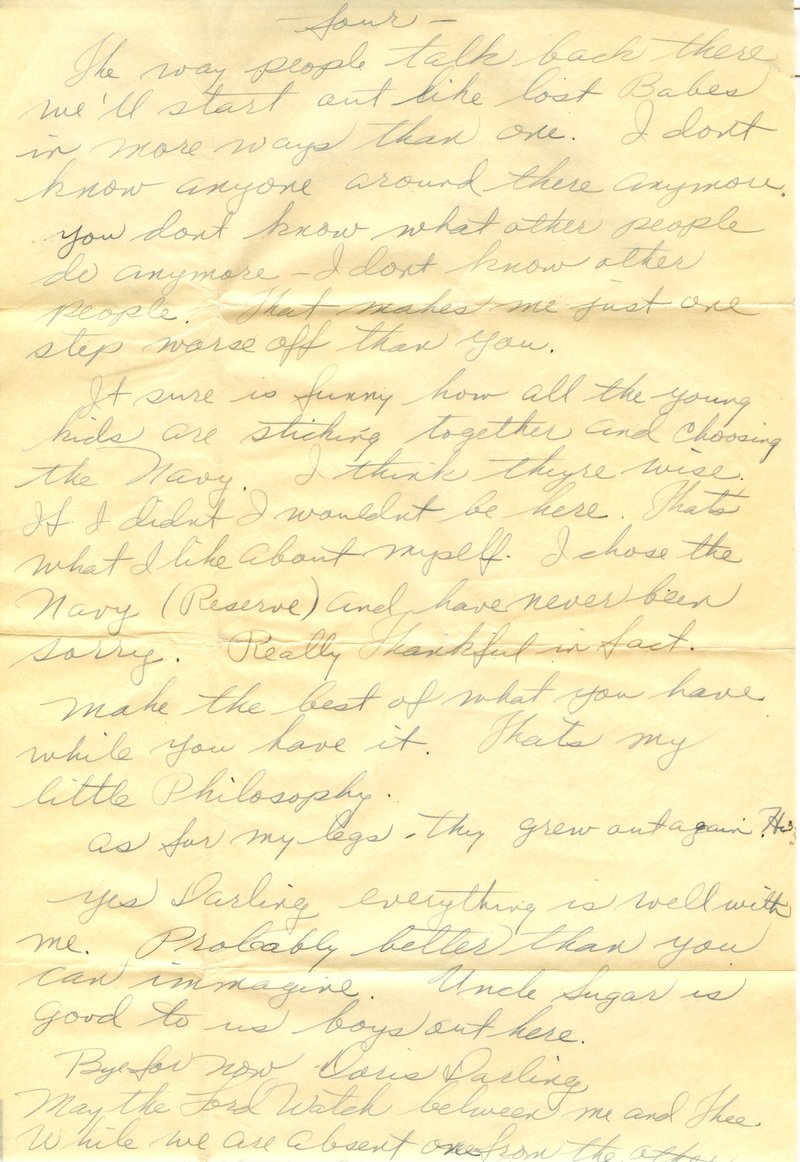 - four -
The way people talk back there
we'll start out like lost Babes
in more ways than one. I dont
know anyone around there anymore.
you dont know what other people
do anymore - I dont know other
people. That makes me just one
step worse off than you.
It sure is funny how all the young
kids are sticking together and choosing
the Navy. I think theyre wise.
If I didnt I wouldnt be here. Thats
what I like about myself. I chose the
Navy (Reserve) and have never been
sorry. Really Thankful in fact.
make the best of what you have
while you have it. Thats my
little Philosophy.
as for my legs - thy grew out again.
yes Darling everything is well with
me. Probably better than you
can immagine. Uncle Sugar is
good to us boys out here.
Bye for now Doris Darling
May the Lord Watch between me and Thee
While we are absent one from the other